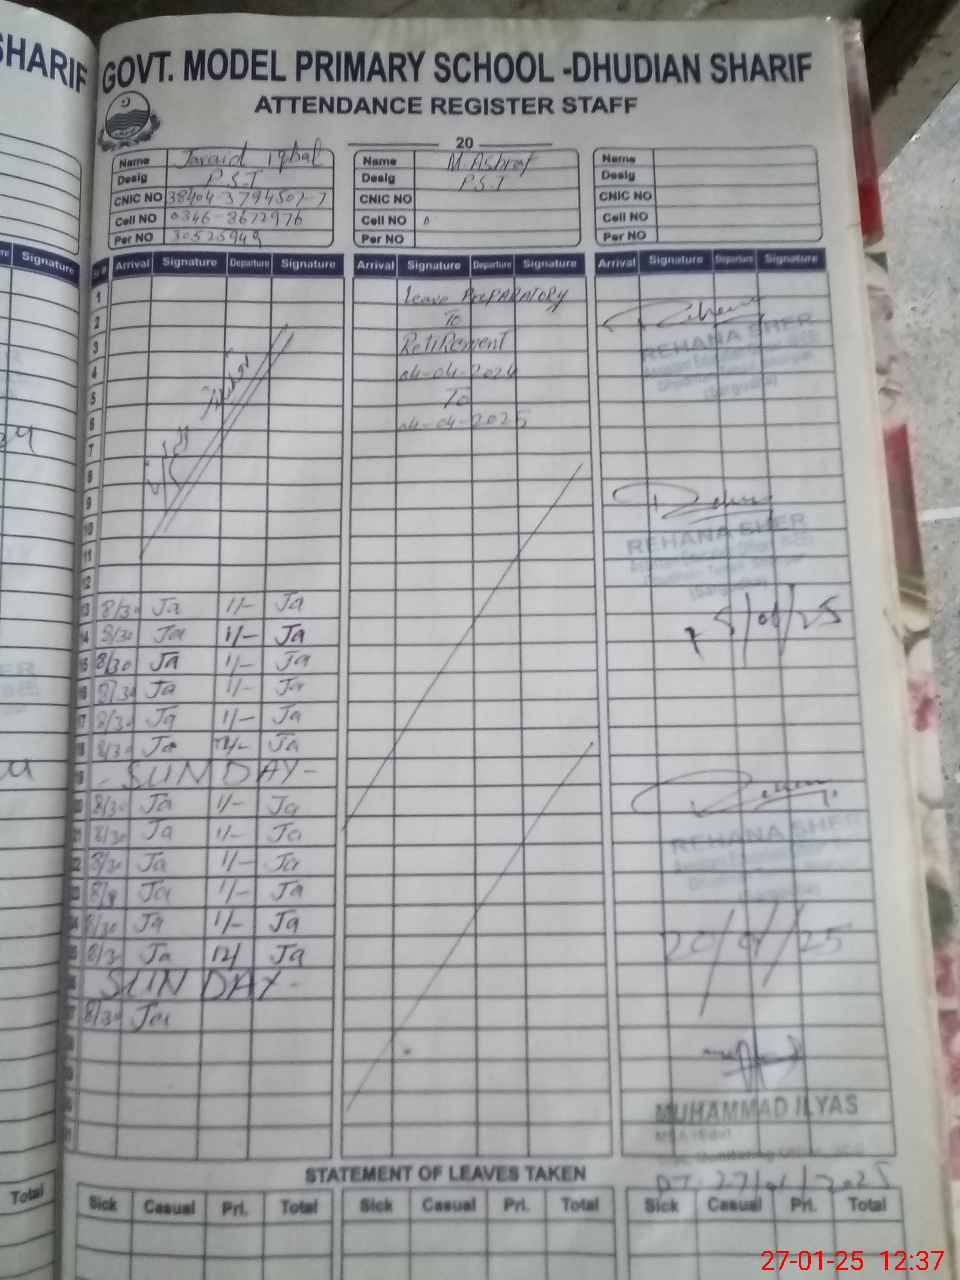 SHARIF
GOVT. MODEL PRIMARY SCHOOL -DHUDIAN SHARIF
ATTENDANCE REGISTER STAFF
20
Name Javaid iqbal
Desig P.S.T
CNIC NO 38404-3794507-7
Cell NO 0346-8672976
Per NO 30525949
Name M.Ashraf
Desig P.S.T
CNIC NO
Cell NO 0
Per NO
Name
Desig
CNIC NO
Cell NO
Per NO
Signature
Arrival Signature Departure Signature
Arrival Signature Departure Signature
Arrival Signature Departure Signature
1 Leave PREPARATORY
2 To
3 RetiRement
4 04-04-2024
5 To
6 04-04-2025
7
8
9
10
11
12
REHANA SHER
REHANA SHER
13 8/30 Ja 1/- Ja
14 8/30 Ja 1/- Ja
15 8/30 Ja 1/- Ja
16 8/30 Ja 1/- Ja
17 8/30 Ja 1/- Ja
18 8/30 Ja 12/- Ja
- SUNDAY -
8/30 Ja 1/- Ja
21 8/30 Ja 1/- Ja
8/30 Ja 1/- Ja
Ja 1/- Ja
8/30 Ja 1/- Ja
8/30 Ja 12/ Ja
SUNDAY -
8/30 Ja
REHANA SHER
20/01/25
MUHAMMAD ILYAS
DT. 27/01/2025
STATEMENT OF LEAVES TAKEN
Total
Sick Casual Pri. Total
Sick Casual Pri. Total
Sick Casual Pri. Total
27-01-25 12:37